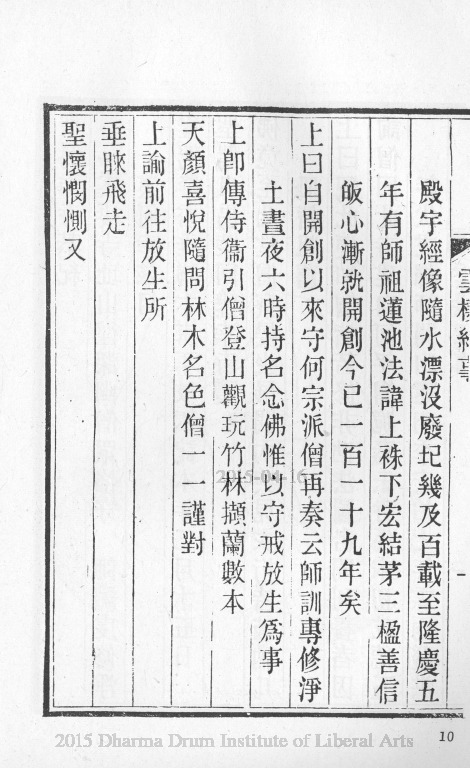 雲棲紀事
殿宇經像隨水漂沒廢圯幾及百載至隆慶五
年有師祖蓮池法諱上祩下宏結茅三楹善信
皈心漸就開創今已一百一十九年矣
上曰自開創以來守何宗派僧再奏云師訓專修淨
土晝夜六時持名念佛惟以守戒放生為事
上卽傳侍衞引僧登山觀玩竹林擷蘭數本
天顏喜悅隨問林木名色僧一一謹對
上諭前往放生所
垂睞飛走
聖懷憫惻又
2015-04-16
2015 Dharma Drum Institute of Liberal Arts
10